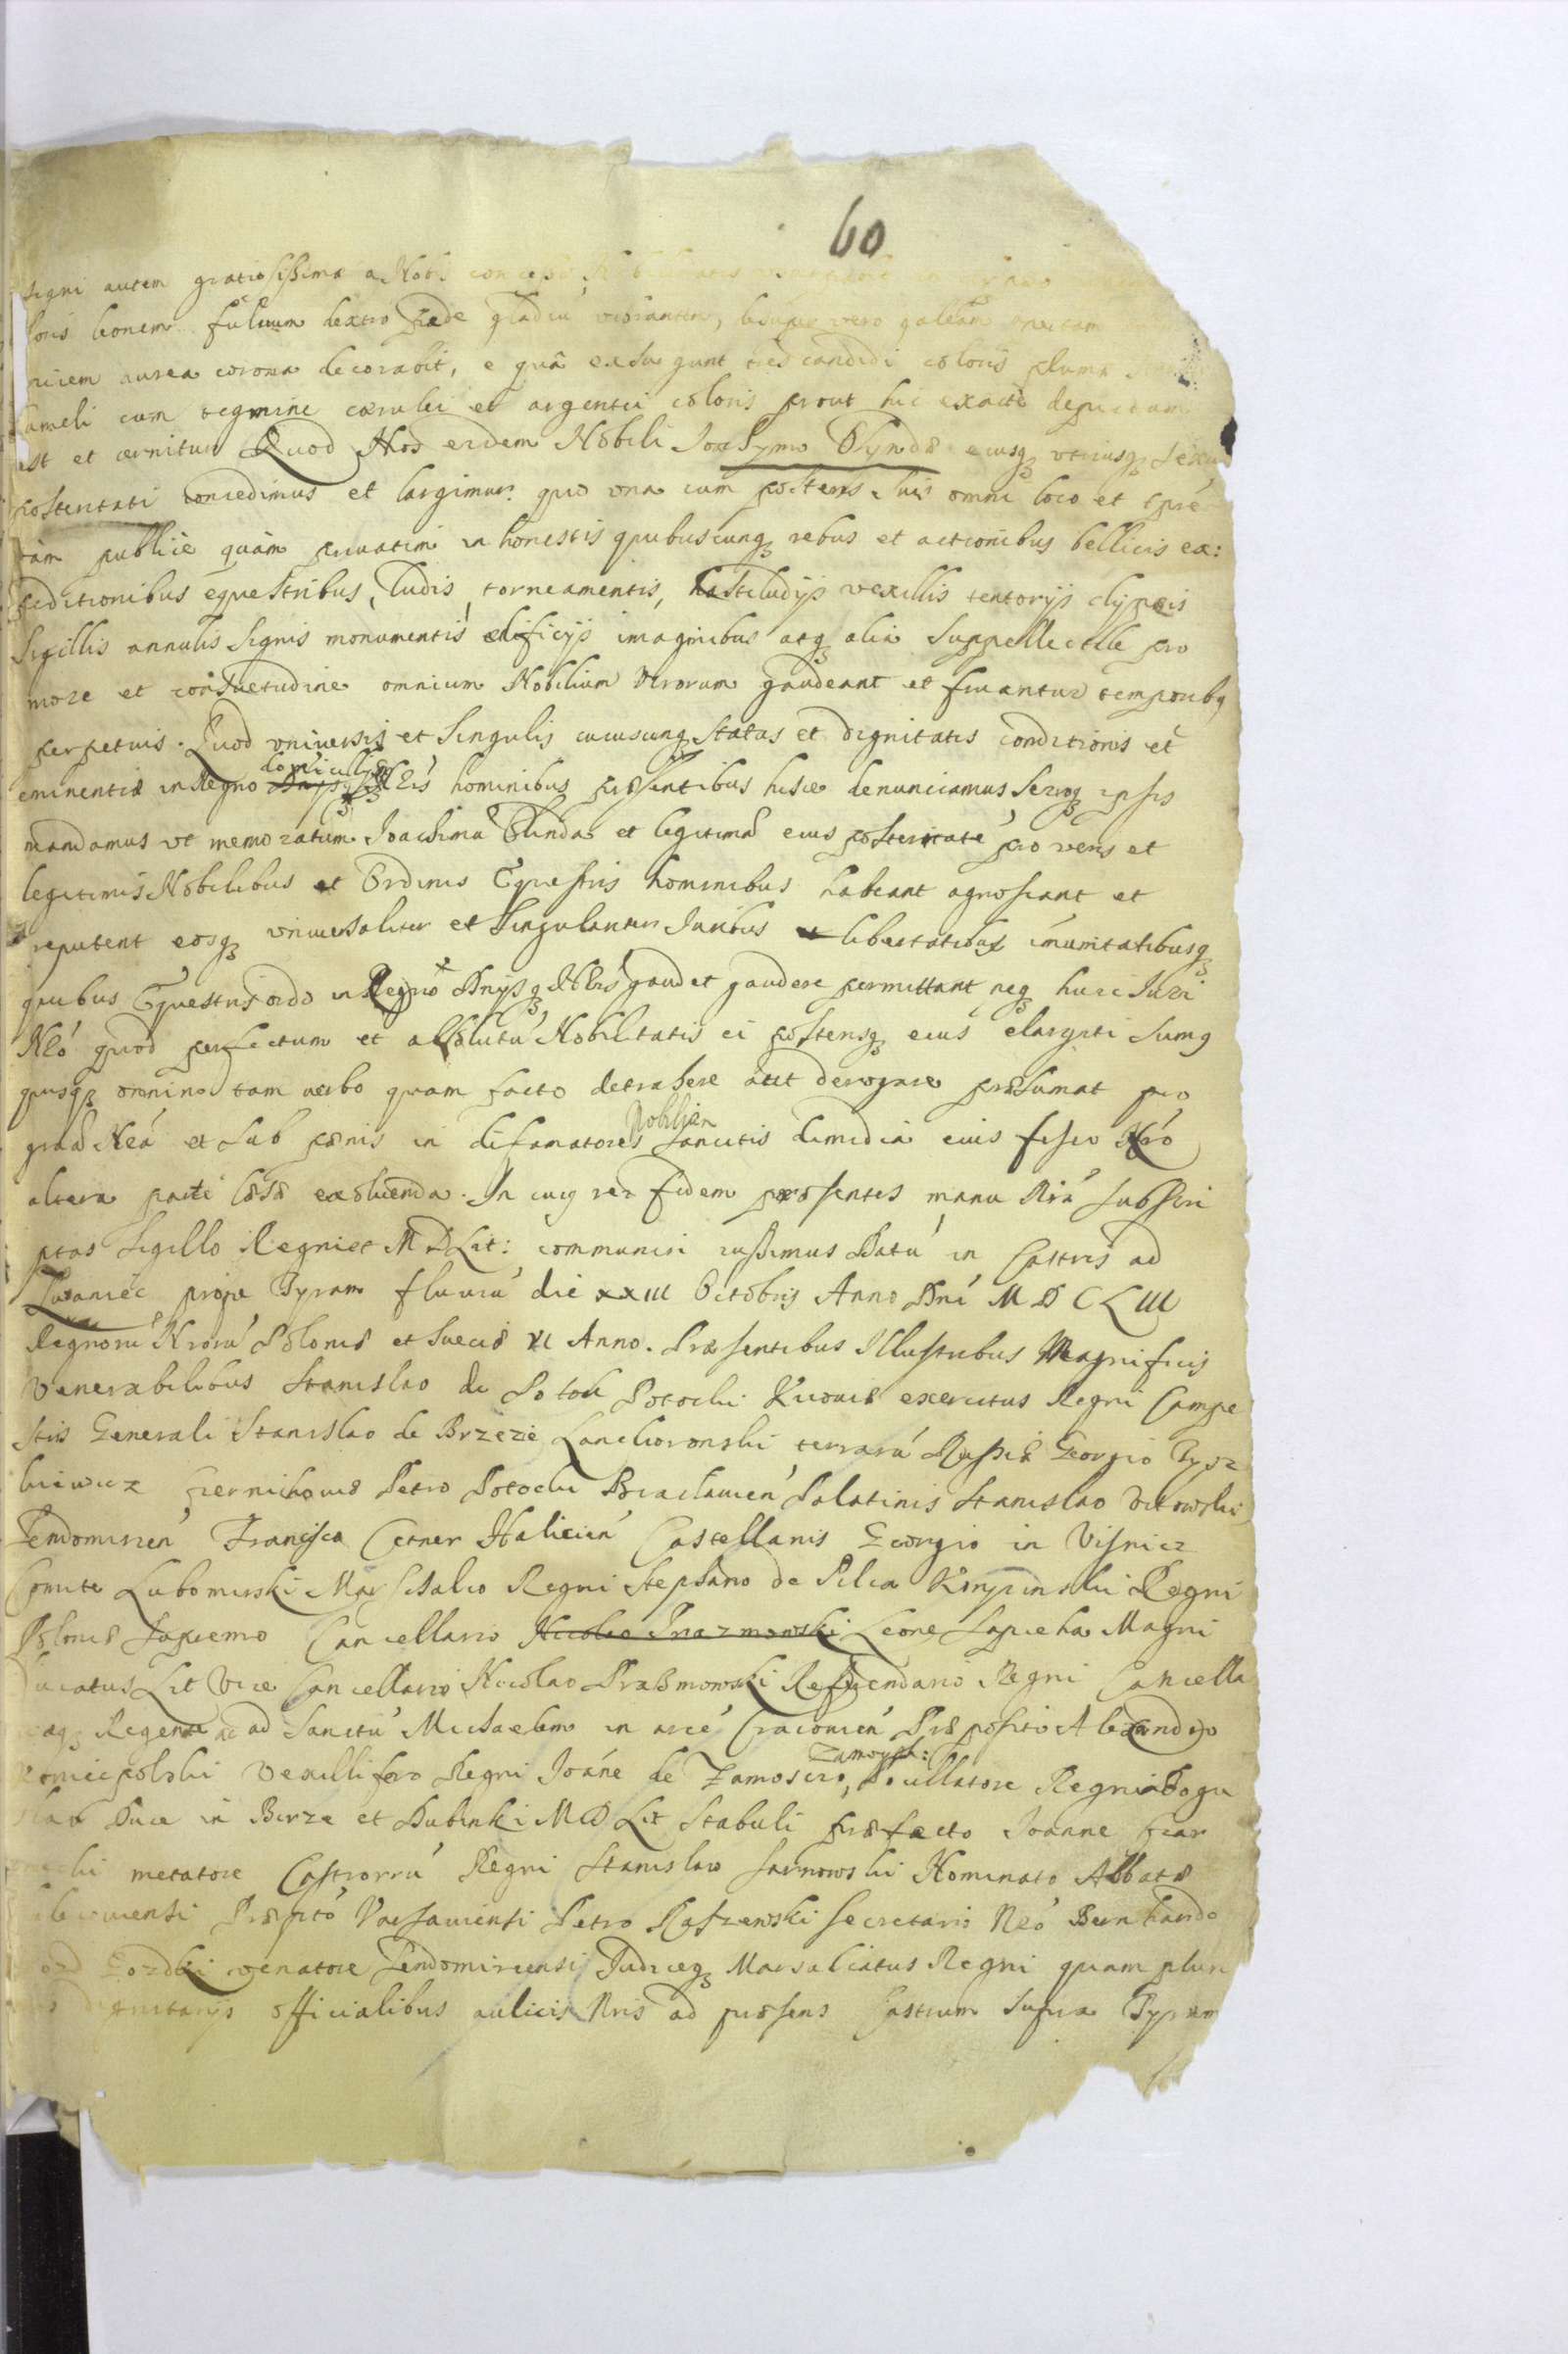 60
signi autem gratiosissima a Nobis
loris leonem fuluum dextro pede gladiu vibrantem, desuper vero galeam apertam
aurea corona decorabit, e quâ exsurgunt tres candidi coloris pluma
cameli cum tegmine cœrulei et argentei coloris prout hic exactè depictum
est et cernitur Quod Nos eidem Nobili Joachymo Blynda eiusq vtriusq sexus
posteritati concedimus et largimur. quo vna cum posteris suis omni loco et tpré
tàm publicè quàm priuatim in honestis quibuscunq rebus et actionibus bellicis ex:
peditionibus equestribus, ludis, torneamentis, hastiludijs vexillis tentorijs clypeis
Sigillis annulis signis monumentis ædificijs imaginibus atq aliâ suppellectile pro
more et consuetudine omnium Nobilium Virorum gaudeant et fruantur temporibq
perpetuis. Quod vniuersis et singulis cuiuscunq status et dignitatis conditionis et
eminentiæ in Regno dominijsq Nris hominibus præsentibus hisce denunciamus Serioq ipsis
mandamus vt memoratum Joachimu Blinda et legitima eius posteritaté pro veris et
legitimis Nobilibus et Ordinis Equestris hominibus habeant agnoscant et
reputent eosq vniuersaliter et singulariter Juribus et libertatibus imunitatibusq
quibus Equestris ordo in Regno Dnijsq Nris gaudet gaudere permittant neq huic Iuri
Nró quod perfectum et absolutú Nobilitatis ei posterisq eius elargiti sumq
quisq omnino tam verbo quam facto detrahere aut derogare præsumat pro
graâ Nrâ et sub pœnis in difamatores Nobilium sancitis dimidia eius fisco Nró
altera parte læsæ exoluenda. In cuiq rei fidem præsentes manu Nrâ subscri
ptas sigillo Regni et M D Lit: communiri iussimus Datú in Castris ad
Zwaniec prope Tyram fluuiú die XXIII Octobris Anno Dni M D C LIII
Regnorú Nrorú Poloniæ et Sueciæ VI Anno. Præsentibus Illustribus Magnificis
Venerabilibus Stanislao de Potok Potocki Kiouiæ exercitus Regni Campe
stris Generali Stanislao de Brzezie Lanckoronski terrarú Russiæ Georgio Tysz
kiewicz Czernihouiæ Petro Potocki Braclauien Palatinis Stanislao Witowski
Sendomirien Francisco Cetner Halicien Castellanis Georgio in Visnicz
Comite Lubomirski Marschalco Regni Stephano de Pilca Korycinski Regni
Poloniæ Supremo Cancellario Nicolao Prazmowski Leone Sapieha Magni
Ducatus Lit Vice Cancellario Nicolao Prazmowski Referendario Regni Cancella
riæq Regente ac ad Sanctú Michaelem in arce Cracouien Præposito Alexandro
Koniecpolski Vexillifero Regni Joáne de Zamoscio, Zamoyski: Pocillatore Regni Bogu
slao Duce in Birze et Dubinki M D Lit Stabuli præfecto Joanne Czar
necki metatore Castrorrú Regni Stanislao Sarnowski Nominato Abbate
Præpito Varsauiensi Petro Rasczewski Secretario Nró Bernhardo
Gozdki venatore Sendomiriensi Judiceq Marsalcatus Regni quam plur
dignitarijs officialibus aulicis Nris ad præsens Castrum supra Tyram